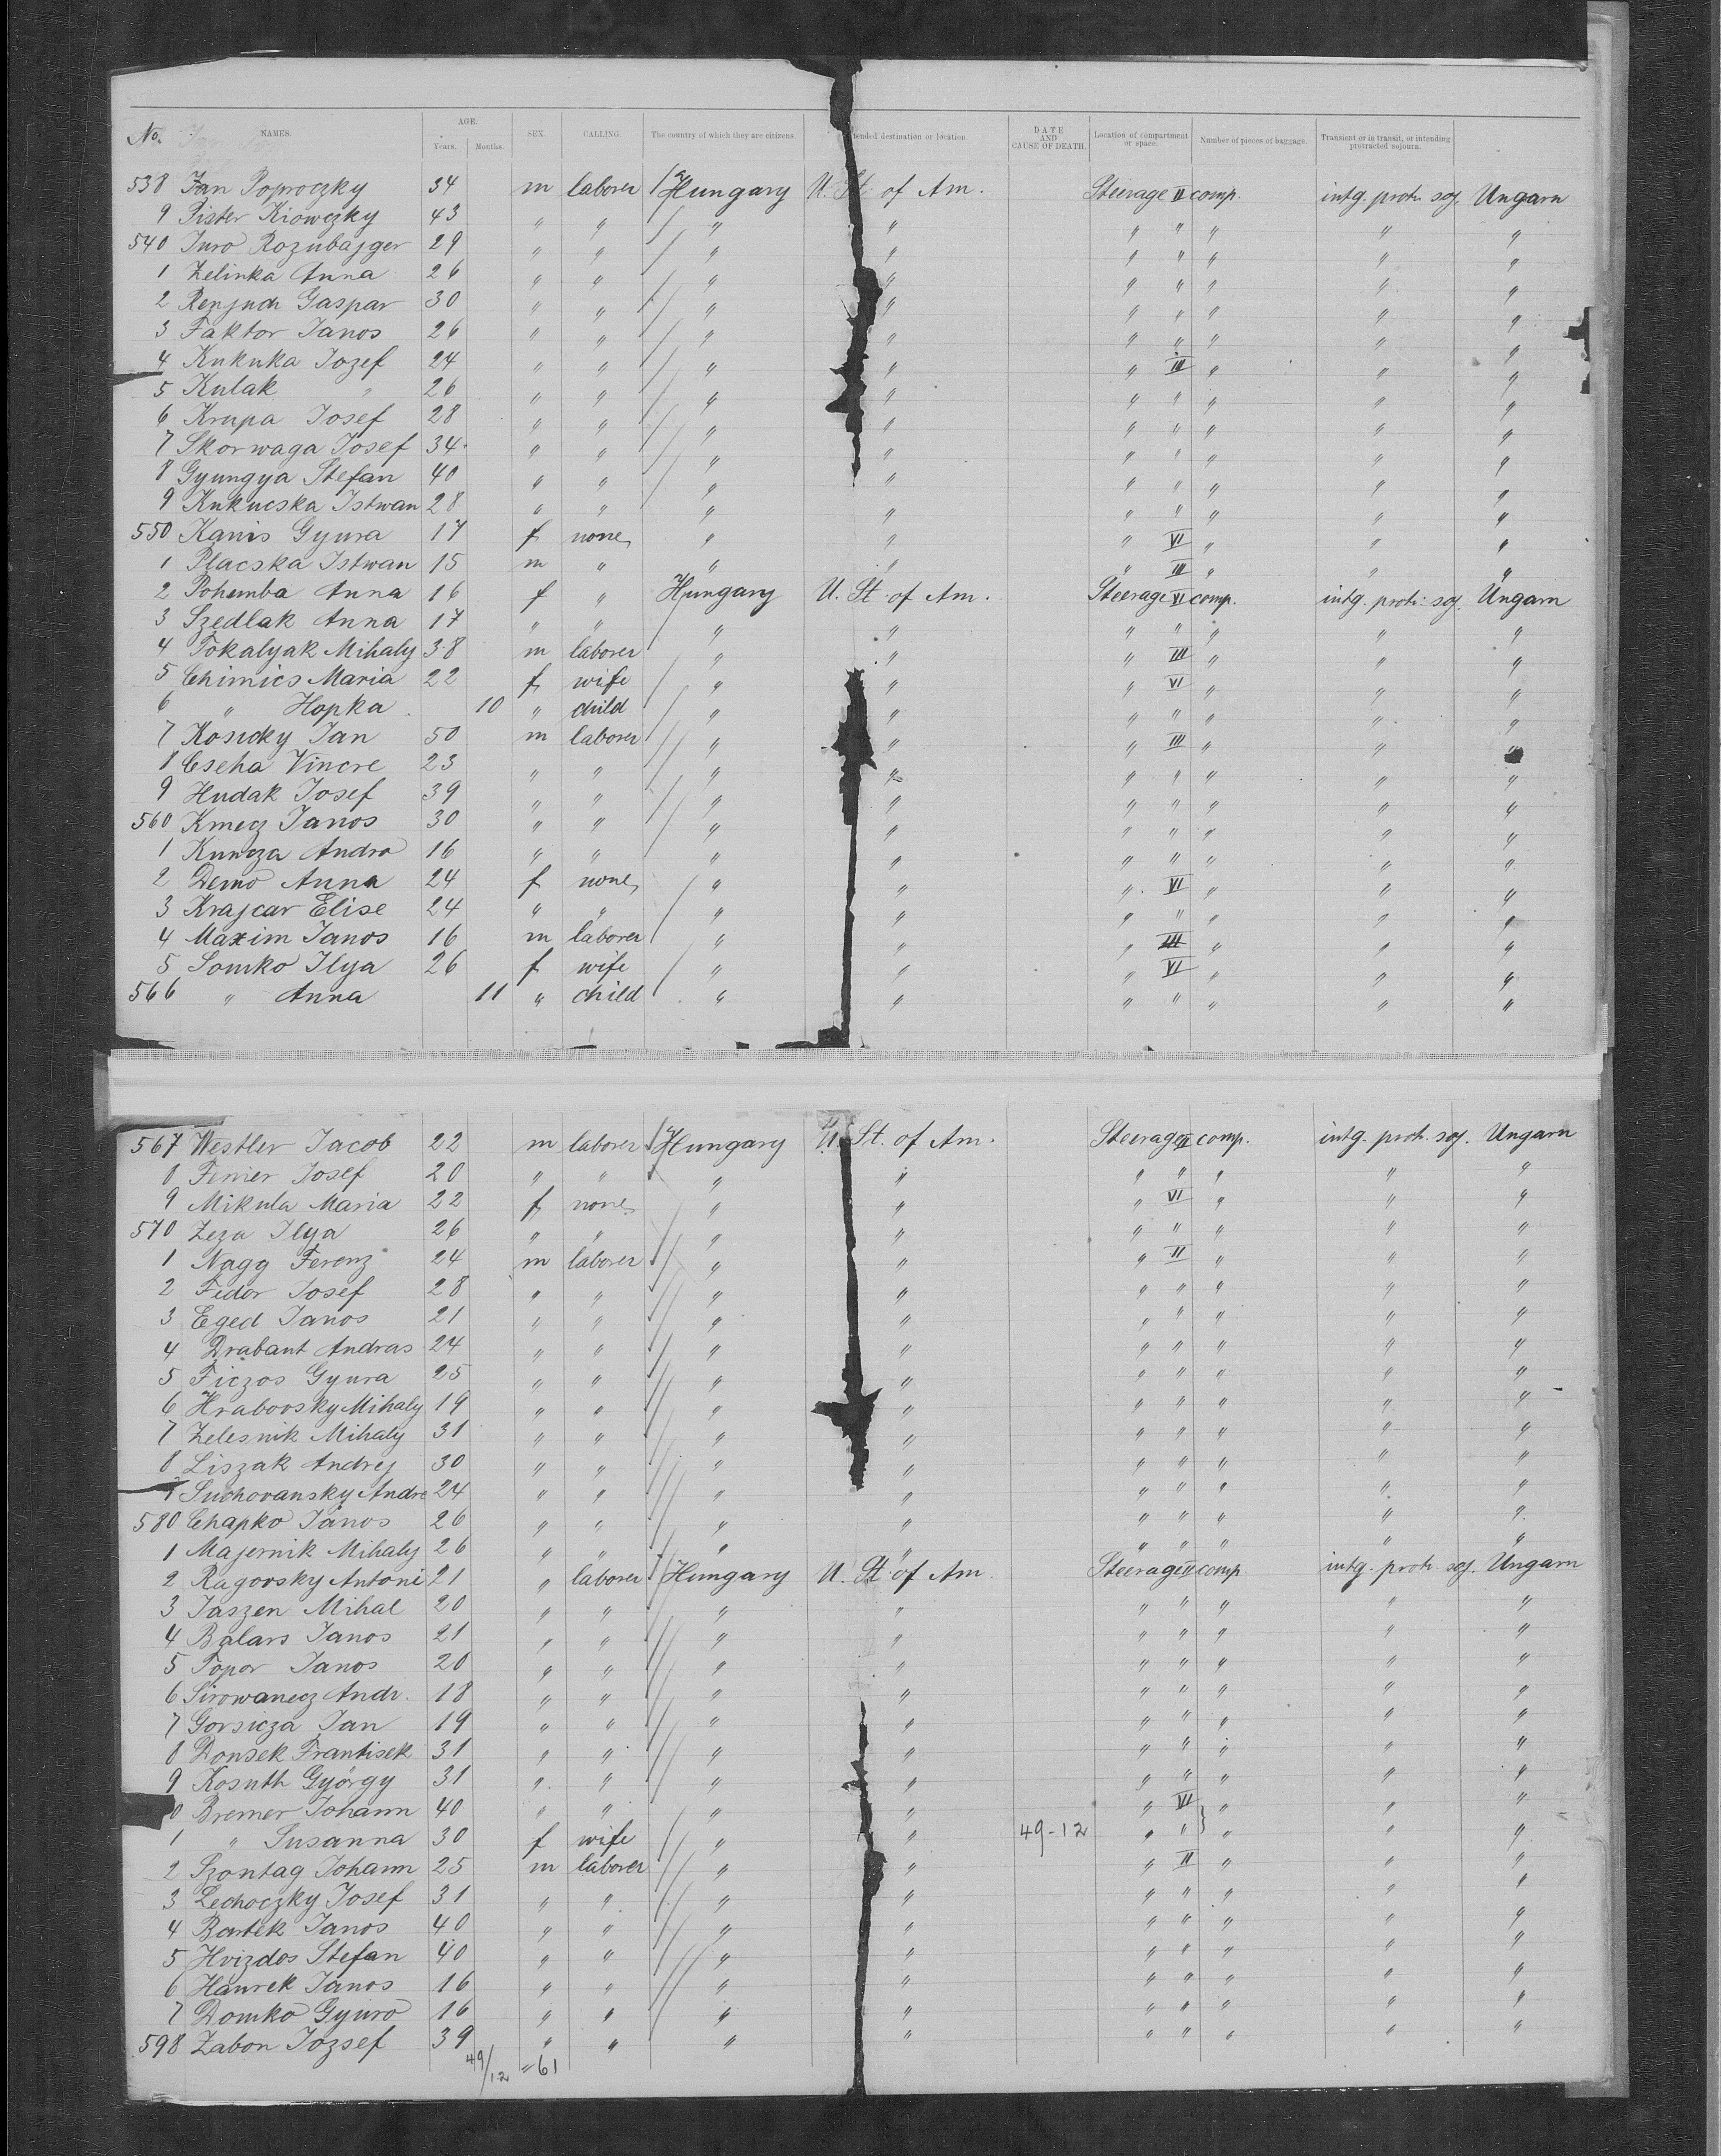 No. NAMES. AGE. Years. Months. SEX. CALLING. The country of which they are citizens. tended destination or location. DATE AND CAUSE OF DEATH. Location of compartment or space. Number of pieces of baggage. Transient or in transit, or intending protracted sojourn.
538 Jan Poproczky 34 m laborer Hungary U. St. of Am. Steerage II comp. intg. protr. soj. Ungarn
9 Pister Kiowczky 43 " " " " " " " " "
540 Juro Rozubajger 29 " " " " " " " " "
1 Zelinka Anna 26 " " " " " " " " "
2 Gaspar 30 " " " " " " " " "
3 Faktor Janos 26 " " " " " " " " "
4 Kukuka Jozef 24 " " " " " III " " "
5 Kulak " 26 " " " " " " " " "
6 Krupa Josef 28 " " " " " " " " "
7 Skorwaga Josef 34 " " " " " " " " "
8 Gyungya Stefan 40 " " " " " " " " "
9 Kukucska Istwan 28 " " " " " " " " "
550 Kanis Gyura 17 f none " " " VI " " "
1 Placska Istwan 15 m " " " " III " " "
2 Pohemba Anna 16 f " Hungary U. St. of Am. Steerage VI comp. intg. protr. soj. Ungarn
3 Szedlak Anna 17 " " " " " " " " "
4 Tokalyak Mihaly 38 m laborer " " " III " " "
5 Chimics Maria 22 f wife " " " VI " " "
6 " Hopka 10 " child " " " " " " "
7 Kosicky Jan 50 m laborer " " " III " " "
8 Cseha Vincre 23 " " " " " " " " "
9 Hudak Josef 39 " " " " " " " " "
560 Kmecz Janos 30 " " " " " " " " "
1 Kuncza Andro 16 " " " " " " " " "
2 Demo Anna 24 f none " " " VI " " "
3 Krajcar Elise 24 " " " " " " " " "
4 Maxim Janos 16 m laborer " " " III " " "
5 Somko Ilya 26 f wife " " " VI " " "
566 " Anna 11 " child " " " " " " "
567 Westler Jacob 22 m laborer Hungary U. St. of Am. Steerage II comp. intg. protr. soj. Ungarn
8 Ferrier Josef 20 " " " " " " " " "
9 Mikula Maria 22 f none " " " VI " " "
570 Zeza Ilya 26 " " " " " " " " "
1 Nagg Ferenz 24 m laborer " " " II " " "
2 Fedor Josef 28 " " " " " " " " "
3 Eged Janos 21 " " " " " " " " "
4 Drabant Andras 24 " " " " " " " " "
5 Ficzos Gyura 25 " " " " " " " " "
6 Hrabovsky Mihaly 19 " " " " " " " " "
7 Zelesnik Mihaly 31 " " " " " " " " "
8 Liszak Andrej 30 " " " " " " " " "
9 Suchovansky Andre 24 " " " " " " " " "
580 Chapko Janos 26 " " " " " " " " "
1 Majernik Mihaly 26 " " " " " " " " "
2 Ragovsky Antoni 21 " laborer Hungary U. St. of Am. Steerage II comp intg. protr. soj. Ungarn
3 Jaszen Mihal 20 " " " " " " " " "
4 Balars Janos 21 " " " " " " " " "
5 Popor Janos 20 " " " " " " " " "
6 Sirowanecz Andr. 18 " " " " " " " " "
7 Gorsicza Jan 19 " " " " " " " " "
8 Donsek Frantisek 31 " " " " " " " " "
9 Kosuth György 31 " " " " " " " " "
0 Bremer Johann 40 " " " " " VI " " "
1 " Susanna 30 f wife " " 49-12 " " " " "
2 Szontag Johann 25 m laborer " " " II " " "
3 Lechoczky Josef 31 " " " " " " " " "
4 Bartek Janos 40 " " " " " " " " "
5 Hvizdos Stefan 40 " " " " " " " " "
6 Haurek Janos 16 " " " " " " " " "
7 Domko Gyuro 16 " " " " " " " " "
598 Zabon Jozsef 39 " " " " " " " " "
49/12 = 61